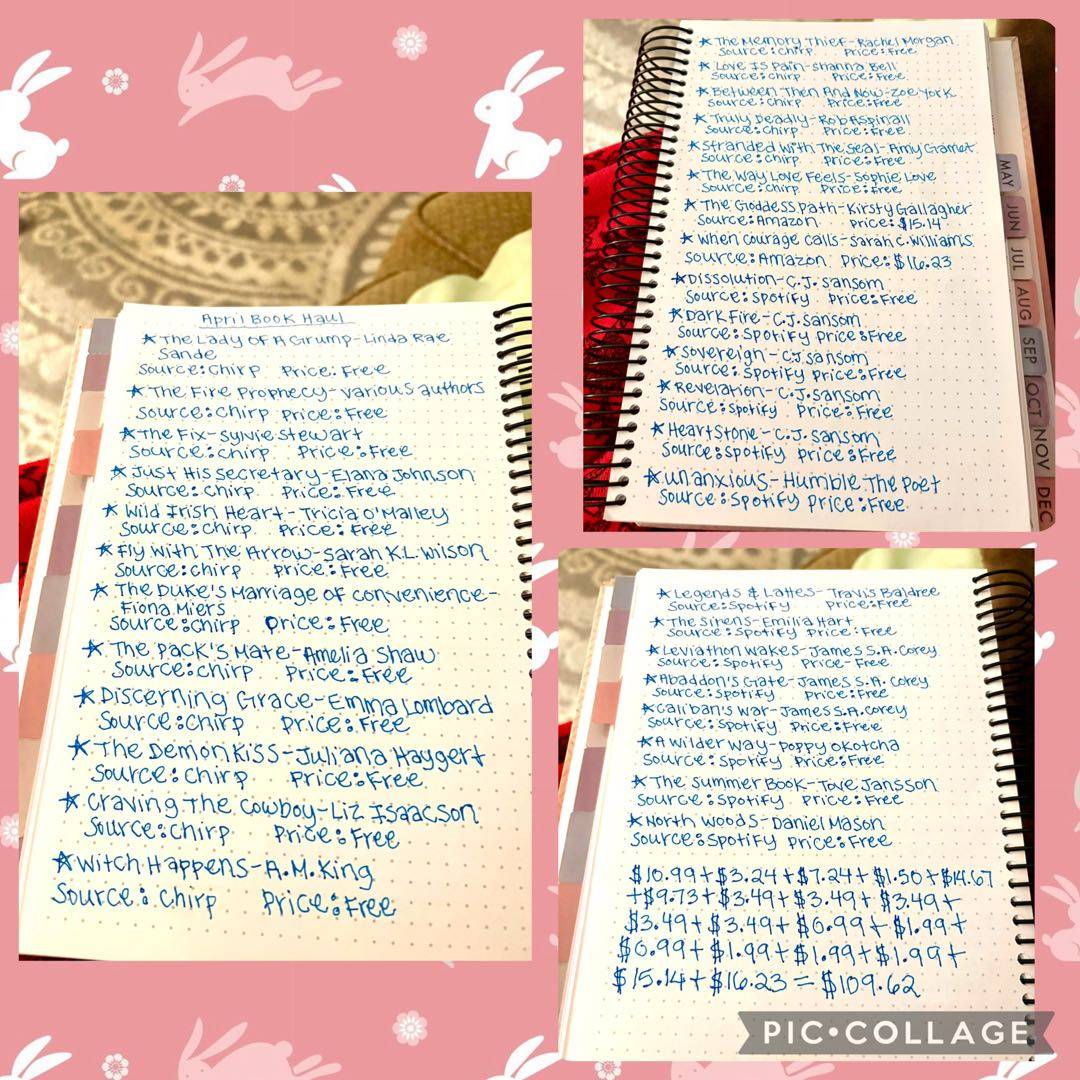 April Book Haul
★The Lady Of A Grump-Linda Rae
Sande
Source:Chirp Price:Free
★The Fire Prophecy-Various authors
Source:Chirp Price:Free
★The Fix-Sylvie Stewart
Source:Chirp Price:Free
★Just His Secretary-Elana Johnson
Source:Chirp Price:Free
★Wild Irish Heart-Tricia O'Malley
Source:Chirp Price:Free
★Fly With The Arrow-Sarah K.L. Wilson
Source:Chirp Price:Free
★The Duke's Marriage of convenience-
Fiona Miers
Source:Chirp Price:Free
★The Pack's Mate-Amelia Shaw
Source:Chirp Price:Free
★Discerning Grace-Emma Lombard
Source:Chirp Price:Free
★The Demon Kiss-Juliana Haygert
Source:Chirp Price:Free
★Craving The Cowboy-Liz Isaacson
Source:Chirp Price:Free
★Witch Happens-A.M.King
Source:Chirp Price:Free
★The Memory Thief-Rachel Morgan
Source:Chirp Price:Free
★Love Is Pain-Shanna Bell
Source:Chirp Price:Free
★Between Then And Now-Zoe York
Source:Chirp Price:Free
★Truly Deadly-Rob Aspinall
Source:Chirp Price:Free
★Stranded With The Seal-Amy Gamet
Source:Chirp Price:Free
★The Way Love Feels-Sophie Love
Source:Chirp Price:Free
★The Goddess Path-Kirsty Gallagher
Source:Amazon Price:$15.14
★When Courage Calls-Sarah C.Williams
Source:Amazon Price:$16.23
★Dissolution-C.J. Sansom
Source:Spotify Price:Free
★Dark Fire-C.J. Sansom
Source:Spotify Price:Free
★Sovereign-C.J. Sansom
Source:Spotify Price:Free
★Revelation-C.J. Sansom
Source:Spotify Price:Free
★HeartStone-C.J. Sansom
Source:Spotify Price:Free
★unanxious-Humble The Poet
Source:Spotify Price:Free
MAY
JUN
JUL
AUG
SEP
OCT
NOV
DEC
★Legends & Lattes-Travis Baldree
Source:Spotify Price:Free
★The Sirens-Emilia Hart
Source:Spotify Price:Free
★Leviathon Wakes-James S.A. Corey
Source:Spotify Price-Free
★Abaddon's Gate-James S.A. Corey
Source:Spotify Price:Free
★Caliban's War-James S.A. Corey
Source:Spotify Price:Free
★A Wilder Way-Poppy Okotcha
Source:Spotify Price:Free
★The Summer Book-Tove Jansson
Source:Spotify Price:Free
★North Woods-Daniel Mason
Source:Spotify Price:Free
$10.99+$3.24+$7.24+$1.50+$14.67
+$9.73+$3.49+$3.49+$3.49+
$3.49+$3.49+$0.99+$1.99+
$0.99+$1.99+$1.99+$1.99+
$15.14+$16.23=$109.62
PIC•COLLAGE